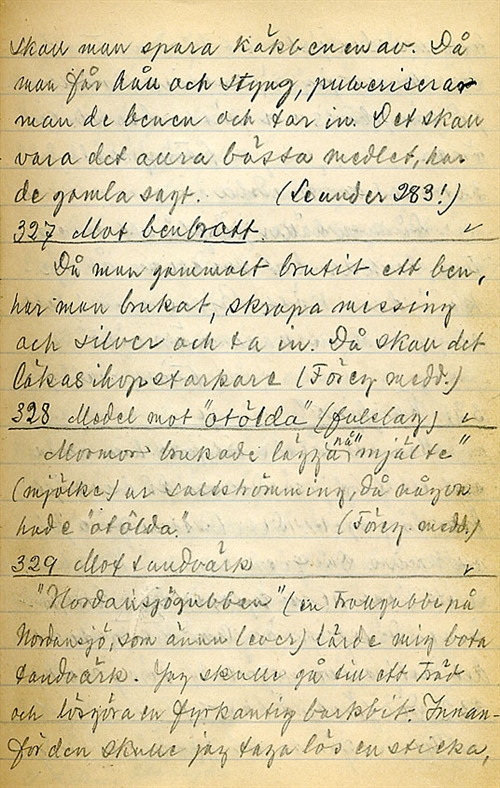 skall man spara käkbenen av. Då
man får håll och styng, pulveriserar
man de benen och tar in. Det skall
vara det allra bästa medlet, har
de gamla sagt. (Leander 283!)
327 Mot benbrott.
Då man gammalt brutit ett ben,
har man brukat, skrapa messing
och silver och ta in. Då skall det
läkas ihop starkare (Föreg. medd.)
328 Medel mot "otölda" (fulslag)
Mormor brukade lägga på "mjälte"
(mjölke) ur saltströmming, då någon
hade "otölda." (Föreg. medd.)
329 Mot tandvärk
"Nordansjögubben" (en Trollgubbe på
Nordansjö, som ännu lever) lärde mig bota
tandvärk. Jag skulle gå till ett träd
och lösgöra en fyrkantig barkbit. Innan-
för den skulle jag taga lös en sticka,